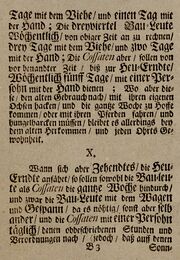 Tage mit dem Viehe / und einen Tag mit
der Hand; Die dreyviertel Bau-Leute
Wöchentlich / von obiger Zeit an zu rechnen /
drey Tage mit dem Viehe / und zwo Tage
mit der Hand; Die Cossaten aber / sollen von
vor benandter Zeit / biß zur Heu-Erndte /
Wöchentlich fünff Tage / mit einer Per-
sohn mit der Hand dienen: Wo aber die-
se / den alten Gebrauch nach / mit ihren eigenen
Ochsen hacken / und die gantze Woche zu Hofe
kommen / oder mit ihren Pferden fahren / und
handlhaecken müssen / bleibet es allerdings bey
dem alten Herkommen / und jeden Ohrts Ge-
wohnheit.
X.
Wann sich aber Zehendtes / die Heu-
Erndte anfähet / so sollen sowohl die Bau-Leu-
te als Cossaten die gantze Woche hindurch /
und zwar die Bau-Leute mit dem Wagen
und Gespann / da es nöthig / sonst aber selb
ander / und die Cossaten mit einer Persohn
täglich / denen obbeschriebenen Stunden und
Verordnungen nach / jedoch / daß auf denen
B 3 Sonn-